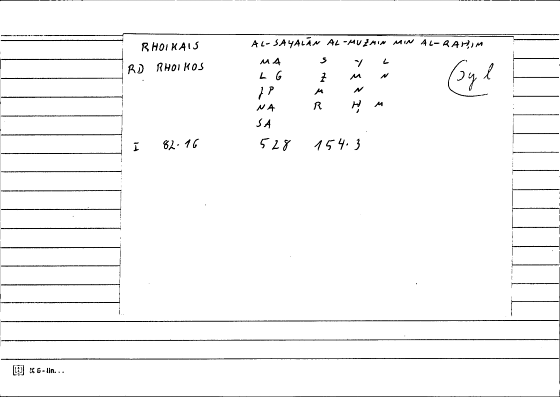 RHOIKAIS AL-SAYALĀN AL-MUZMIN MIN AL-RAḤIM
RD RHOIKOS MA S Y L
LG Z M N
ȷP M N
NA R Ḥ M
SA
I 82.16 528 154.3
syl